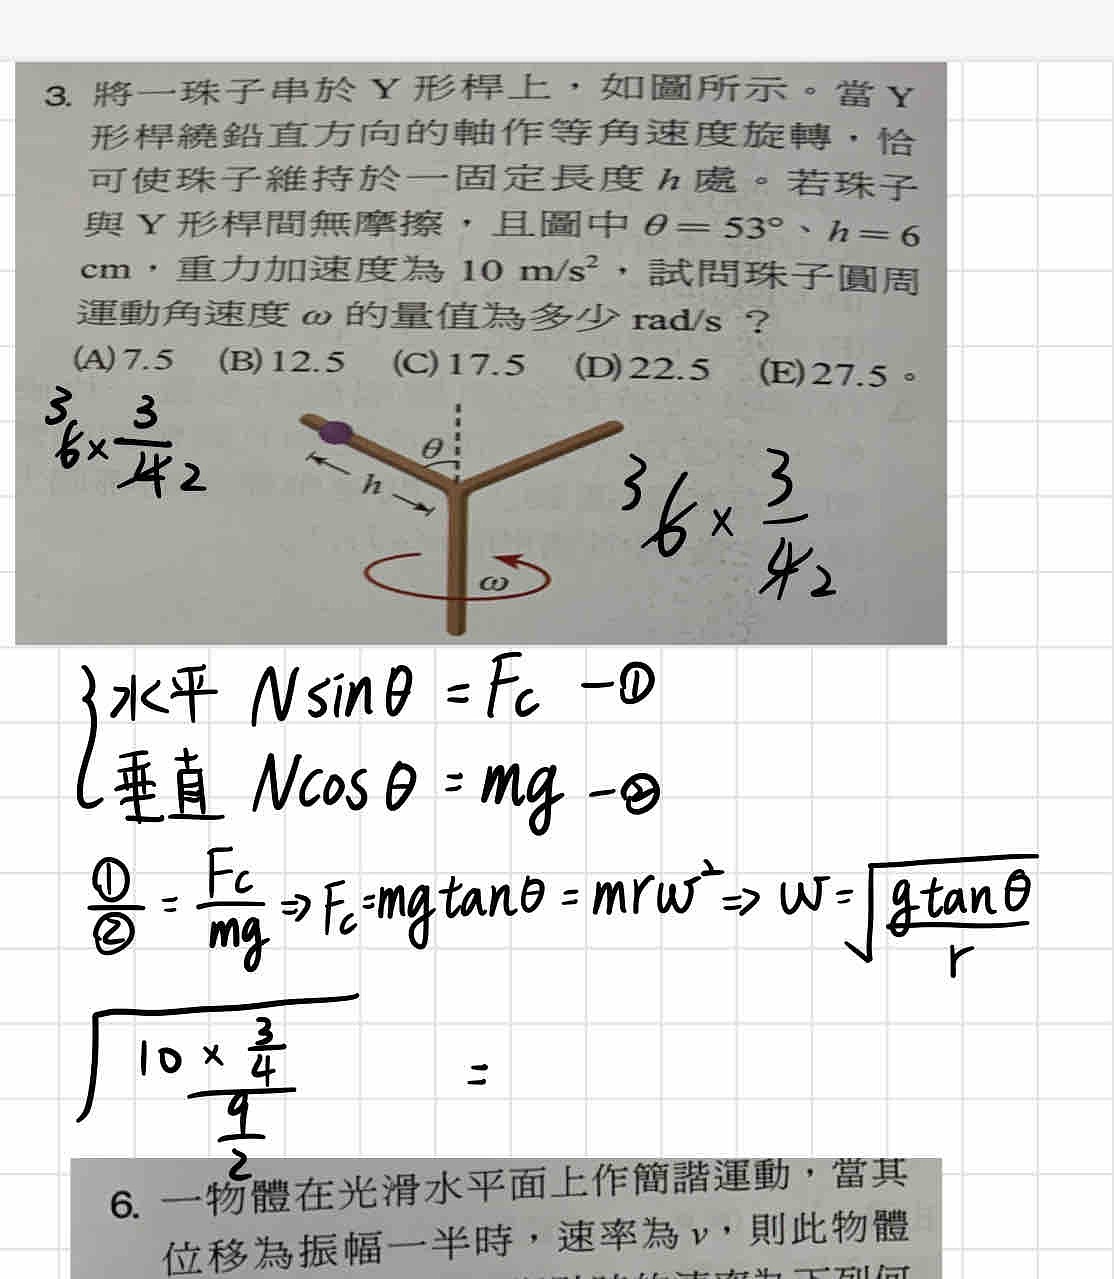 3. 將一珠子串於 Y 形桿上，如圖所示。當 Y
形桿繞鉛直方向的軸作等角速度旋轉，恰
可使珠子維持於一固定長度 h 處。若珠子
與 Y 形桿間無摩擦，且圖中 θ = 53°、h = 6
cm，重力加速度為 10 m/s²，試問珠子圓周
運動角速度 ω 的量值為多少 rad/s ？
(A) 7.5 (B) 12.5 (C) 17.5 (D) 22.5 (E) 27.5。
3 6 × 3/4 2
θ
h
ω
3 6 × 3/4 2
{ 水平 N sin θ = Fc —①
垂直 N cos θ = mg —②
①/② = Fc/mg ⇒ Fc = mg tan θ = mrw² ⇒ w = √(g tan θ / r)
√(10 × 3/4 / 9/2) =
6. 一物體在光滑水平面上作簡諧運動，當其
位移為振幅一半時，速率為 v，則此物體